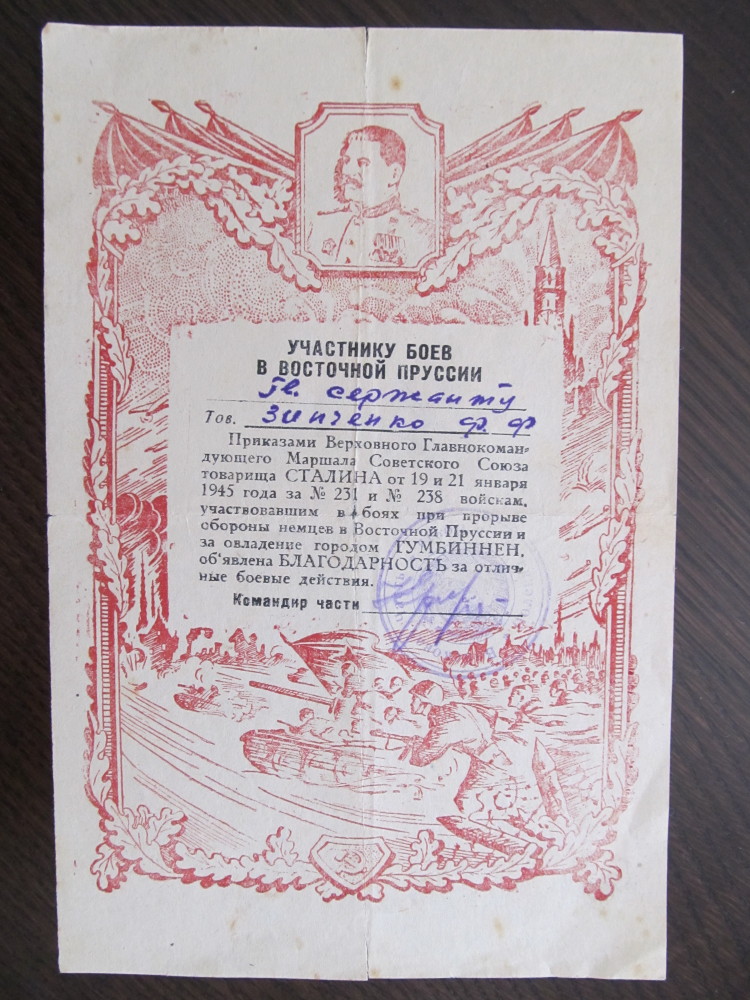 УЧАСТНИКУ БОЕВ
В ВОСТОЧНОЙ ПРУССИИ
Гв. сержанту
Тов. Зинченко Ф. Ф
Приказами Верховного Главнокоман-
дующего Маршала Советского Союза
товарища СТАЛИНА от 19 и 21 января
1945 года за № 231 и № 238 войскам,
участвовавшим в боях при прорыве
обороны немцев в Восточной Пруссии и
за овладение городом ГУМБИННЕН,
об'явлена БЛАГОДАРНОСТЬ за отлич-
ные боевые действия.
Командир части